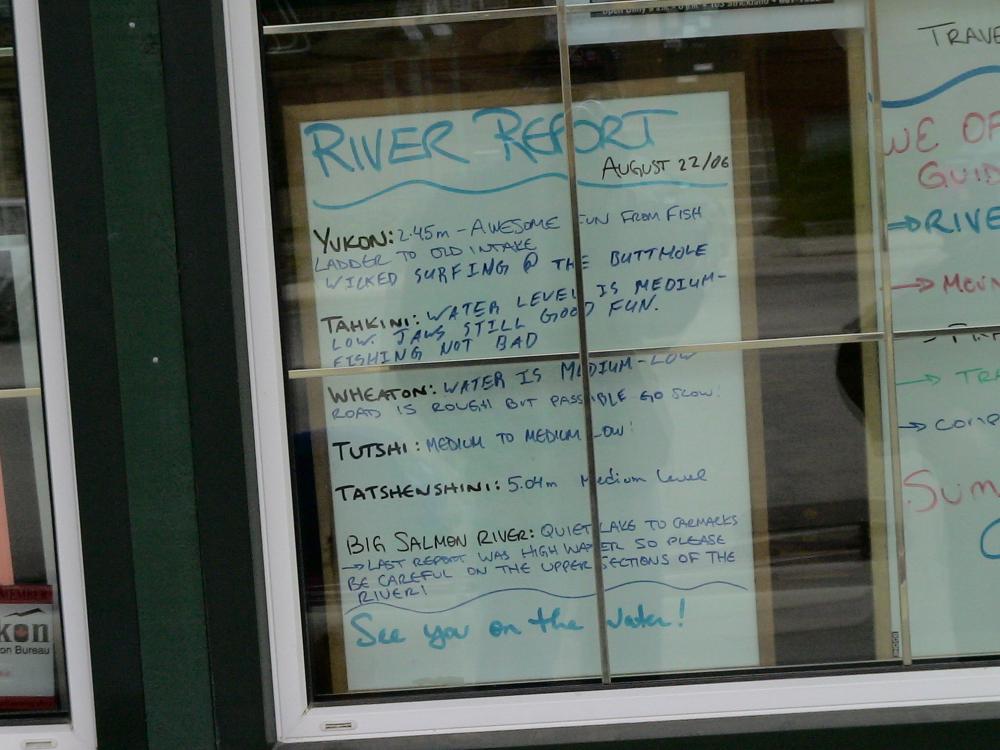 RIVER REPORT
AUGUST 22/06
YUKON: 2.45m - AWESOME FUN FROM FISH
LADDER TO OLD INTAKE
WICKED SURFING @ THE BUTTHOLE
TAHKINI: WATER LEVEL IS MEDIUM-
LOW. JAWS STILL GOOD FUN.
FISHING NOT BAD
WHEATON: WATER IS MEDIUM-LOW
ROAD IS ROUGH BUT PASSIBLE GO SLOW!
TUTSHI: MEDIUM TO MEDIUM LOW!
TATSHENSHINI: 5.04m Medium Level
BIG SALMON RIVER: QUIET LAKE TO CARMACKS
→ LAST REPORT WAS HIGH WATER SO PLEASE
BE CAREFUL ON THE UPPER SECTIONS OF THE
RIVER!
See you on the water!
TRAVE
WE OF
GUID
⇒ RIVE
→ TRA
Sum
MEMBER
kon
on Bureau